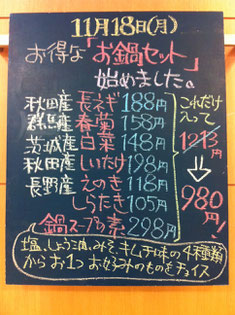 11月18日(月)
お得な「お鍋セット」
始めました。
秋田産 長ネギ 188円
群馬産 春菊 158円
茨城産 白菜 148円
秋田産 しいたけ 198円
長野産 えのき 118円
しらたき 105円
鍋スープの素 298円
これだけ
入って
1213円
980円!
塩、しょう油、みそ、キムチ味の4種類
からお1つお好みのものをチョイス